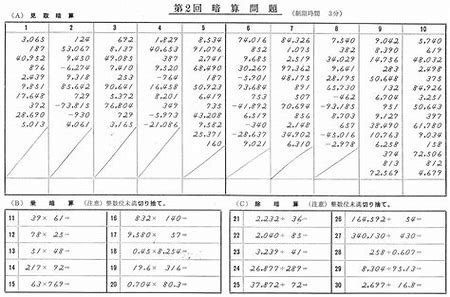 第2回 暗算問題 (制限時間 3分)
(A) 見取暗算
1 2 3 4 5 6 7 8 9 10
3.065 124 692 1.829 8.534 74.016 84.326 7.540 9.042 5.740
187 53.067 8.137 40.653 91.076 852 1.075 382 8.390 619
40.952 9.450 49.085 387 2.741 9.685 34.029 14.756 48.032
876 -6.274 7.410 9.520 68.490 30.267 97.362 9.641 283 2.498
2.439 9.318 253 -764 187 -5.901 48.175 28.195 50.648 375
9.851 85.642 90.641 16.458 50.923 73.684 891 65.730 132 84.926
729 5.372 -8.201 6.419 753 507 -462 6.704 3.251
372 -73.815 76.804 349 735 -41.892 70.694 -93.185 951 50.643
28.690 -930 729 -5.973 43.208 6.519 856 8.703 9.127 397
5.013 4.061 3.165 -21.086 9.582 -340 2.148 657 38.490 61.780
25.371 -28.637 34.902 -45.016 10.763 9.034
160 9.021 6.310 -2.978 6.258 158
374 72.506
813 812
72.569 4.679
(B) 乗暗算 (注意) 整数位未満切り捨て。
11 39× 61=
12 78× 25=
13 51× 48=
14 217× 92=
15 63×769=
16 832× 140=
17 9.580× 57=
18 0.45×8.254=
19 17.6× 316=
20 0.704× 80.3=
(C) 除暗算 (注意) 整数位未満切り捨て。
21 2.232÷ 36=
22 2.040÷ 85=
23 3.239÷ 41=
24 26.877÷289=
25 37.872÷ 72=
26 164.592÷ 54=
27 340.130÷ 430=
28 258÷0.607=
29 8.304÷75.13=
30 2.697÷ 16.8=